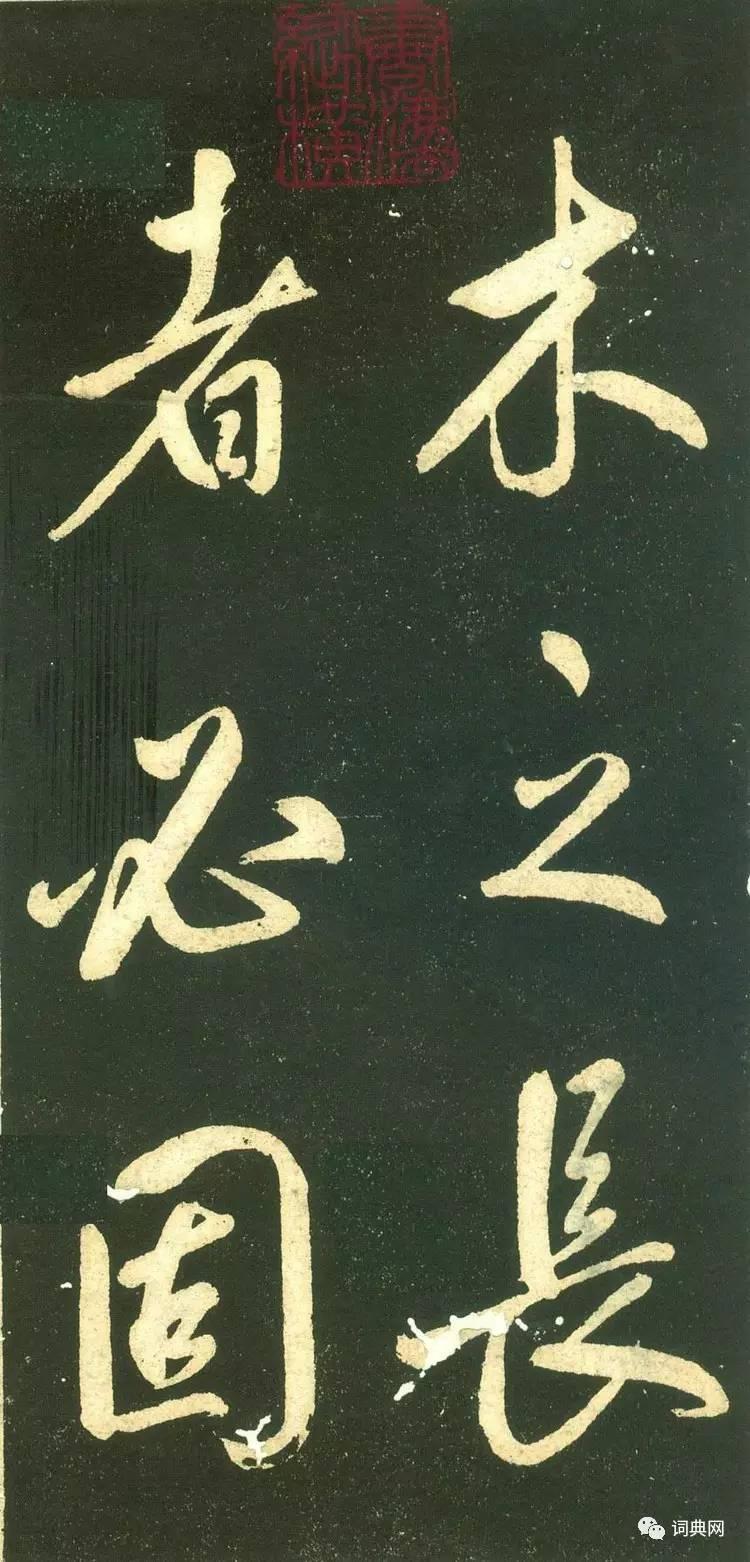 木之長
者必固
词典网